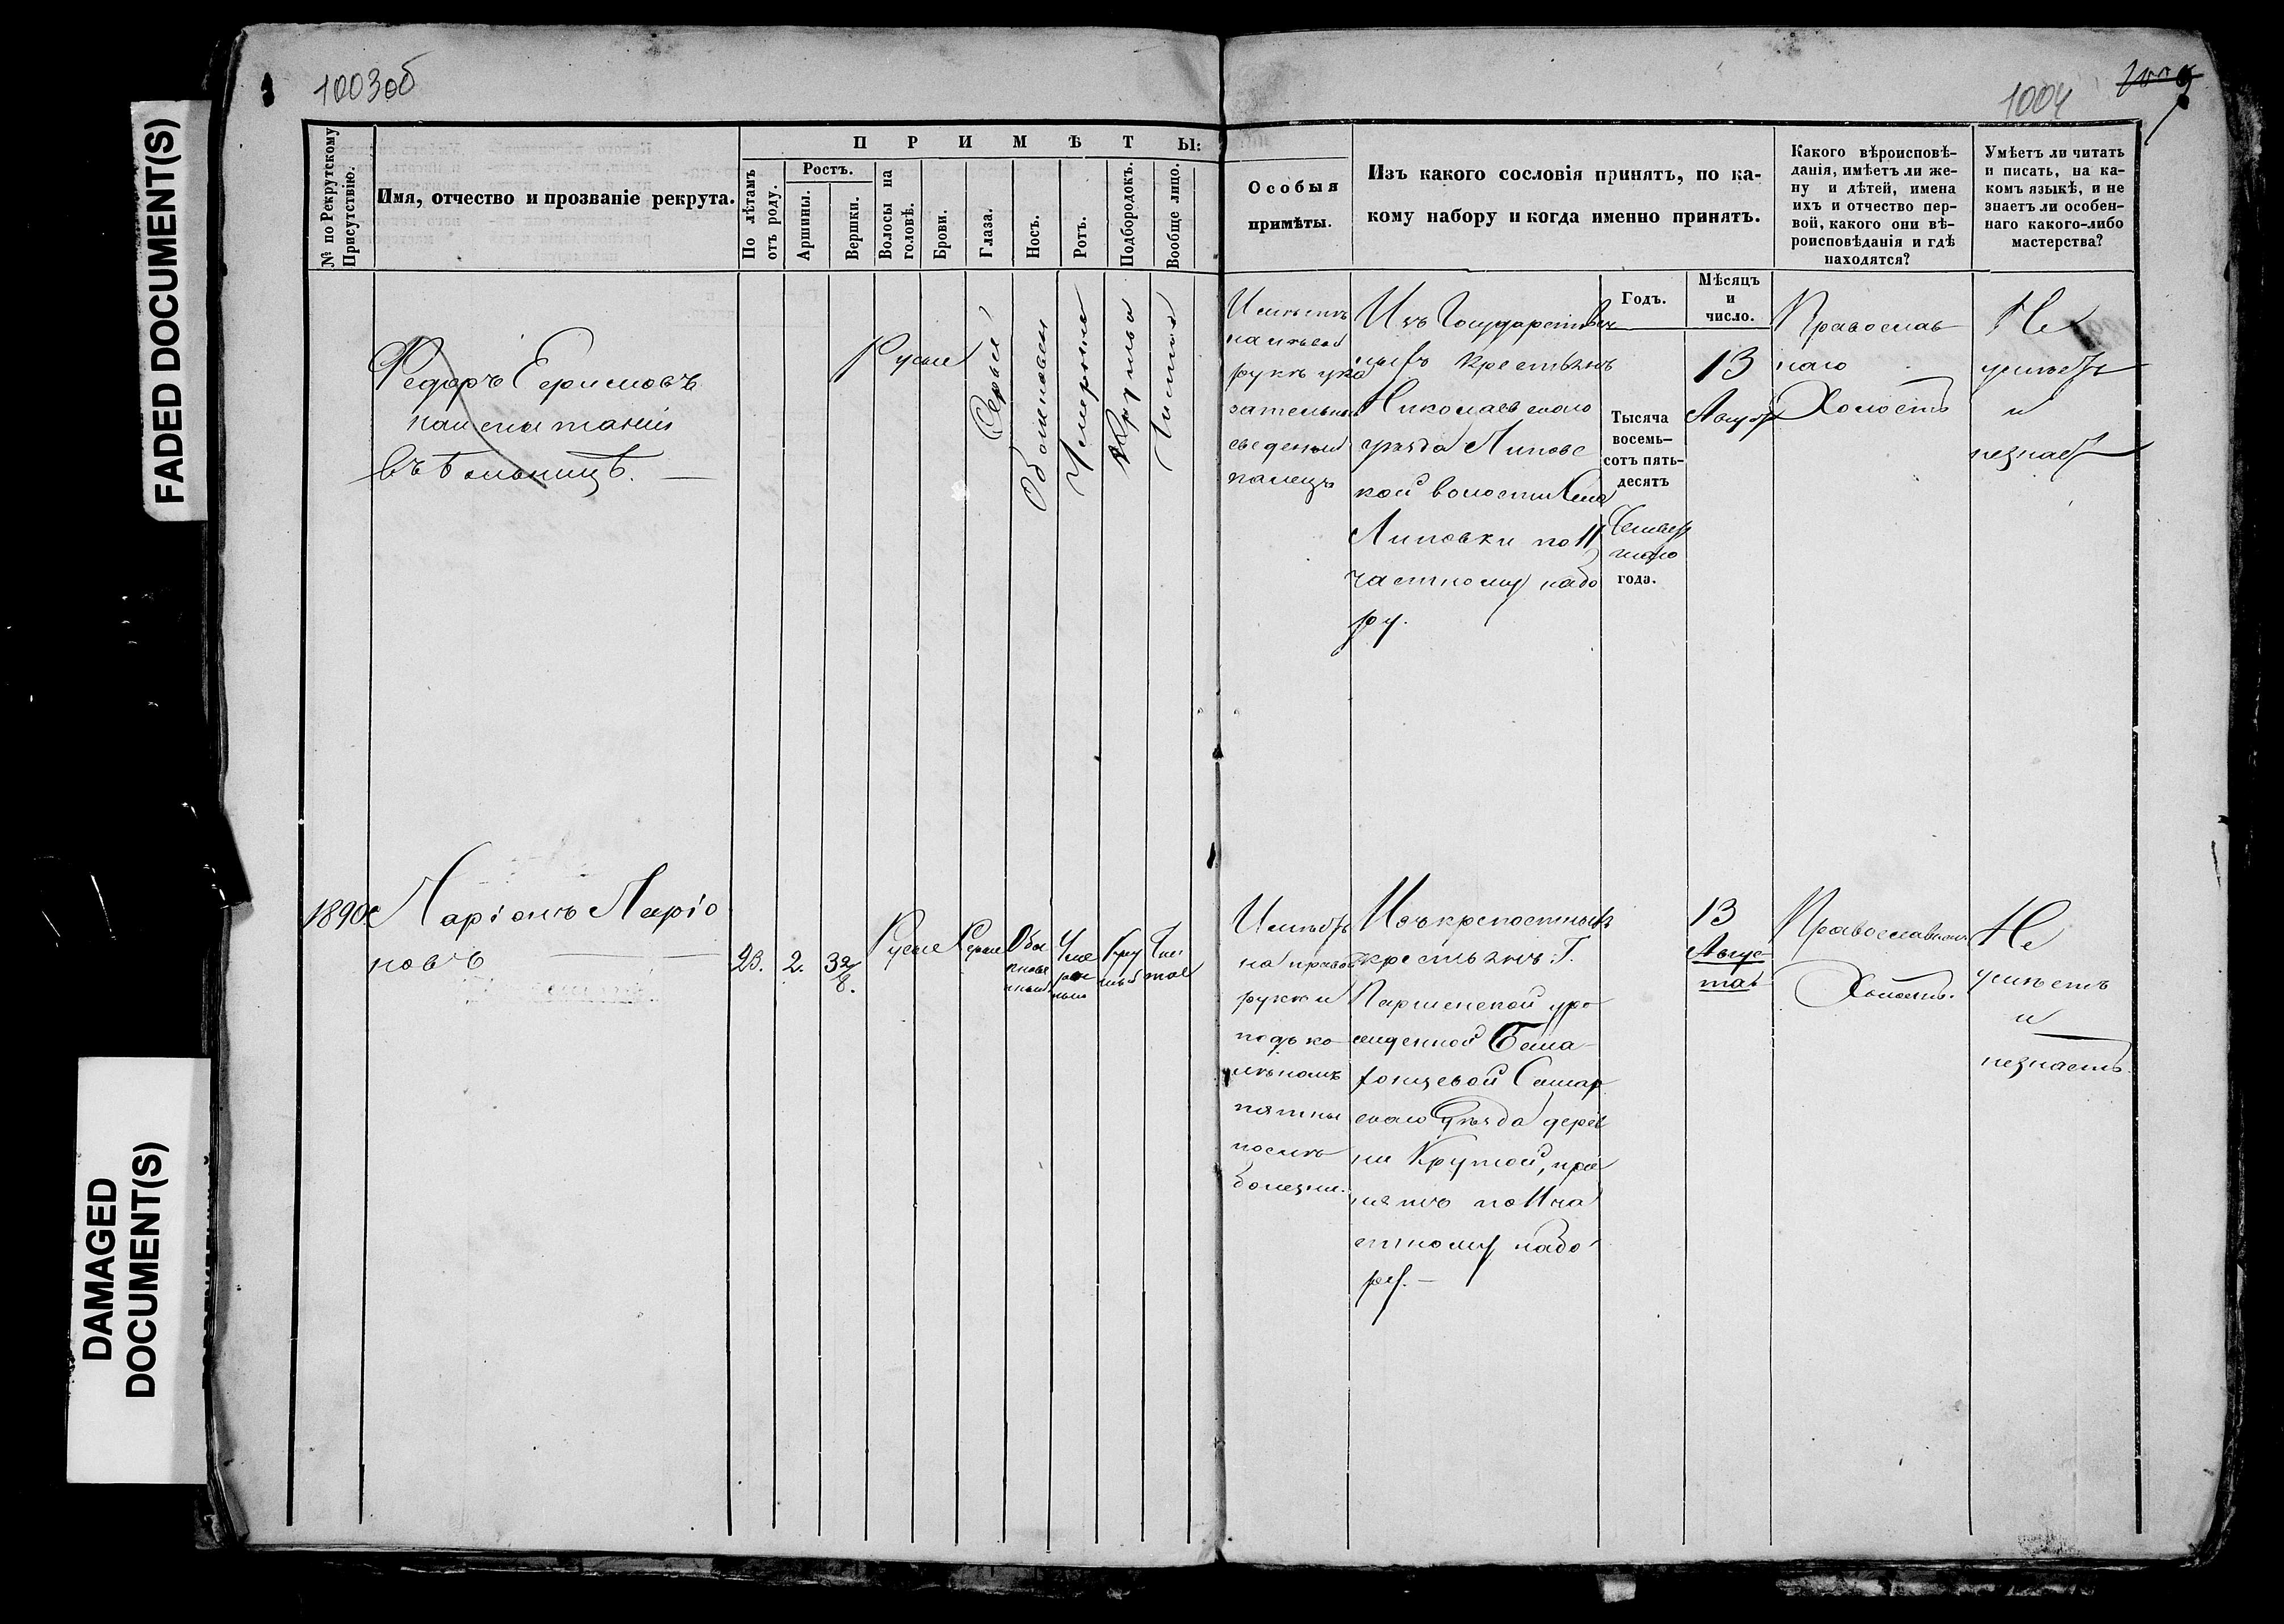 FADED DOCUMENT(S)
DAMAGED
DOCUMENT(S)
1003об
1004
№ по Рекрутскому
Присутствію.
Имя, отчество и прозваніе рекрута.
ПРИМѢТЫ:
По лѣтамъ
отъ роду.
Ростъ.
Аршины.
Вершки.
Волосы на
головѣ.
Брови.
Глаза.
Носъ.
Ротъ.
Подбородокъ.
Вообще лицо.
Особыя
примѣты.
Изъ какого сословія принятъ, по ка-
кому набору и когда именно принятъ.
Какого вѣроисповѣ-
данія, имѣетъ ли же-
ну и дѣтей, имена
ихъ и отчество пер-
вой, какого они вѣ-
роисповѣданія и гдѣ
находятся?
Умѣетъ ли читать
и писать, на ка-
комъ языкѣ, и не
знаетъ ли особен-
наго какого-либо
мастерства?
Годъ.
Мѣсяцъ
и
число.
Федоръ Ефимовъ
на испытаніи
въ больницѣ.
Русые
Серые
Обыкновен
Умеренно
Круглый
Чистое
Имѣетъ
на левой
рукѣ ука
зательный
сведеный
палецъ
Изъ Государствен
ныхъ крестьянъ
Николаевскаго
уѣзда Липовс
кой волости Села
Липовки по 11
частному набо
ру.
Тысяча
восемь-
сотъ пять-
десятъ
года.
13
Август
Православ
наго
Холостъ
Не
умѣетъ
и
незнаетъ
1890
Ларіонъ Ларіо
новъ
23.
2.
3 2/8.
Русые
Серые
Обы
кнове
нный
Уме
рен
ный
Кру
глый
Чис
тое
Имѣетъ
на правой
рукѣ и
подъ ко
лѣномъ
пятны
послѣ
болезни.
Изъ крепостныхъ
крестьянъ Г.
Самар
скаго Уѣзда дерев
ни Крутой, при
нятъ по 11 ча
стному набо
ру.
13
Авгус
та
Православнаго
Холостъ.
Не
умѣетъ
и
незнаетъ.